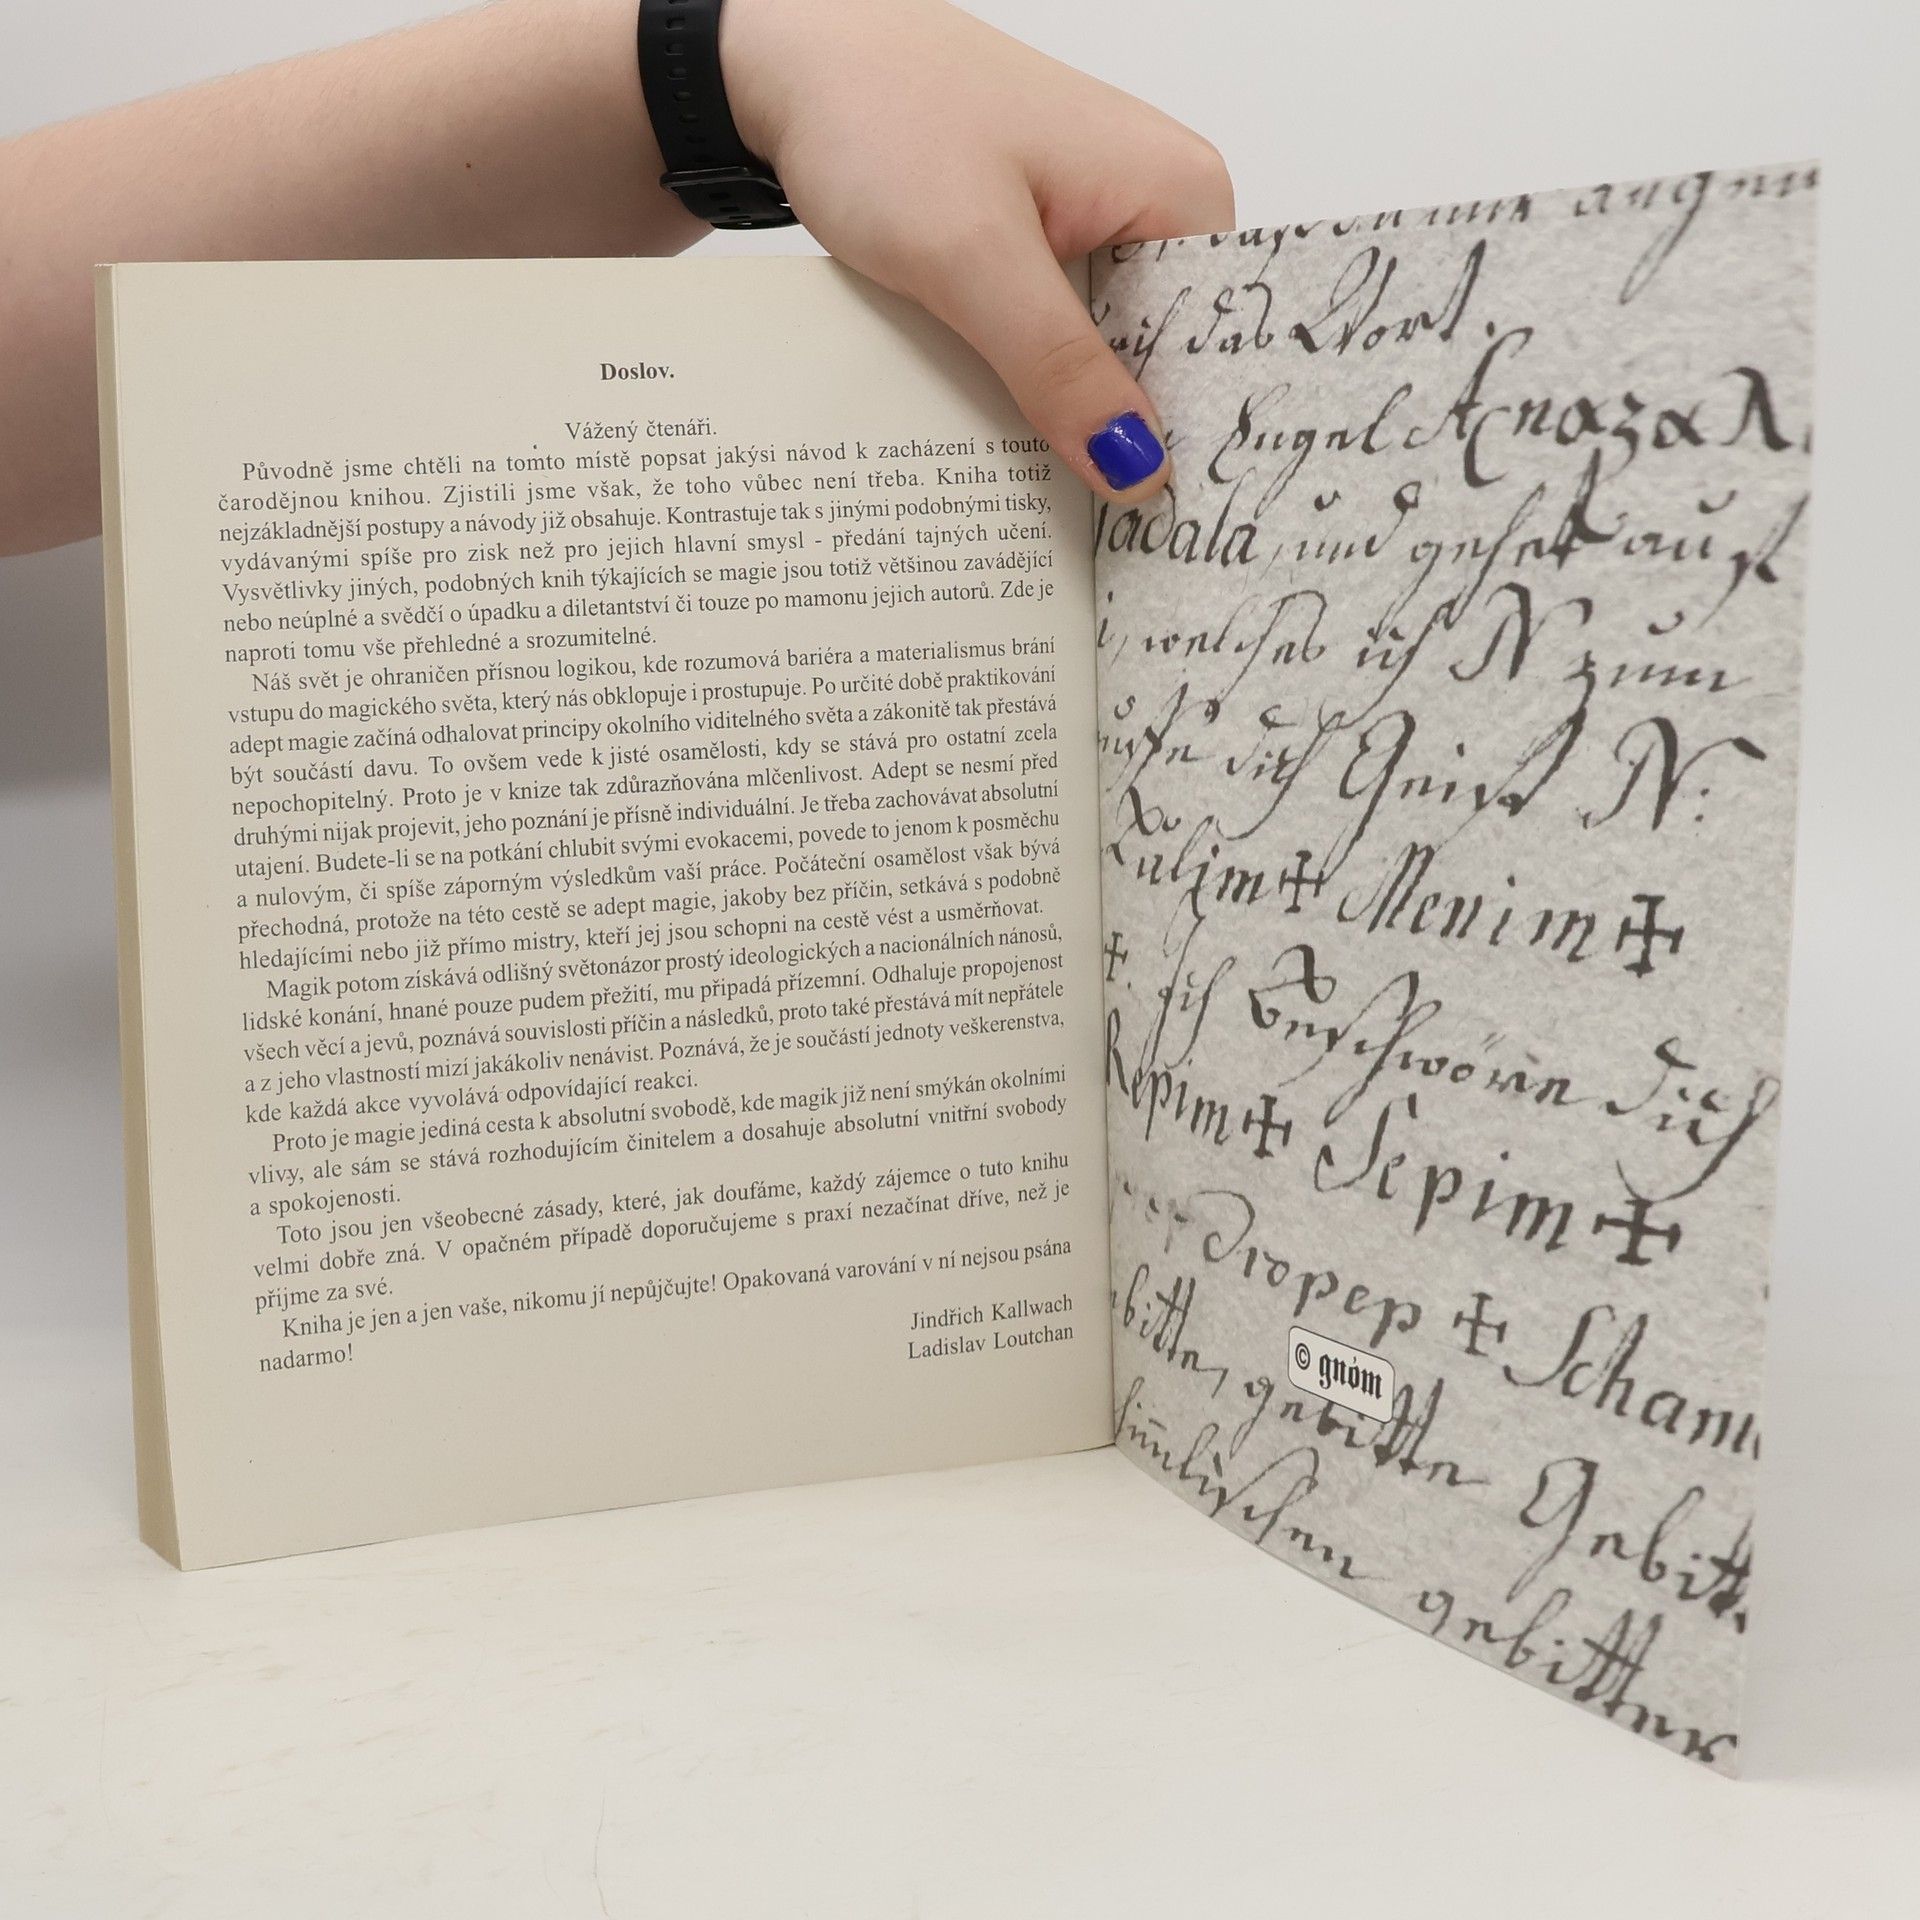 Doslov.
Vážený čtenáři.
Původně jsme chtěli na tomto místě popsat jakýsi návod k zacházení s touto
čarodějnou knihou. Zjistili jsme však, že toho vůbec není třeba. Kniha totiž
nejzákladnější postupy a návody již obsahuje. Kontrastuje tak s jinými podobnými tisky,
vydávanými spíše pro zisk než pro jejich hlavní smysl - předání tajných učení.
Vysvětlivky jiných, podobných knih týkajících se magie jsou totiž většinou zavádějící
nebo neúplné a svědčí o úpadku a diletantství či touze po mamonu jejich autorů. Zde je
naproti tomu vše přehledné a srozumitelné.
Náš svět je ohraničen přísnou logikou, kde rozumová bariéra a materialismus brání
vstupu do magického světa, který nás obklopuje i prostupuje. Po určité době praktikování
adept magie začíná odhalovat principy okolního viditelného světa a zákonitě tak přestává
být součástí davu. To ovšem vede k jisté osamělosti, kdy se stává pro ostatní zcela
nepochopitelný. Proto je v knize tak zdůrazňována mlčenlivost. Adept se nesmí před
druhými nijak projevit, jeho poznání je přísně individuální. Je třeba zachovávat absolutní
utajení. Budete-li se na potkání chlubit svými evokacemi, povede to jenom k posměchu
a nulovým, či spíše záporným výsledkům vaší práce. Počáteční osamělost však bývá
přechodná, protože na této cestě se adept magie, jakoby bez příčin, setkává s podobně
hledajícími nebo již přímo mistry, kteří jej jsou schopni na cestě vést a usměrňovat.
Magik potom získává odlišný světonázor prostý ideologických a nacionálních nánosů,
lidské konání, hnané pouze pudem přežití, mu připadá přízemní. Odhaluje propojenost
všech věcí a jevů, poznává souvislosti příčin a následků, proto také přestává mít nepřátele
a z jeho vlastností mizí jakákoliv nenávist. Poznává, že je součástí jednoty veškerenstva,
kde každá akce vyvolává odpovídající reakci.
Proto je magie jediná cesta k absolutní svobodě, kde magik již není smýkán okolními
vlivy, ale sám se stává rozhodujícím činitelem a dosahuje absolutní vnitřní svobody
a spokojenosti.
Toto jsou jen všeobecné zásady, které, jak doufáme, každý zájemce o tuto knihu
velmi dobře zná. V opačném případě doporučujeme s praxí nezačínat dříve, než je
přijme za své.
Kniha je jen a jen vaše, nikomu jí nepůjčujte! Opakovaná varování v ní nejsou psána
nadarmo!
Jindřich Kallwach
Ladislav Loutchan
das Wort.
Engel
und gehet
welches ich N zum
dich Geist N:
Menim ✠
✠. Ich beschwöre dich
Repim ✠ Sepim ✠
✠
gebitte Gebitt
gebitter
© gnóm